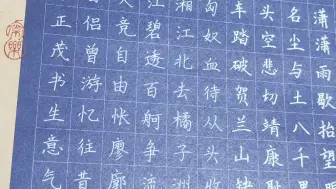 潇潇雨歇抬望
名尘与土八千里
头空悲切靖康耻
车踏破贺兰山缺
匈奴血待从头收
湘江北去橘子洲
江碧透百舸争流
天竞自由怅廖廓
侣曾游忆往昔
正茂书生意气